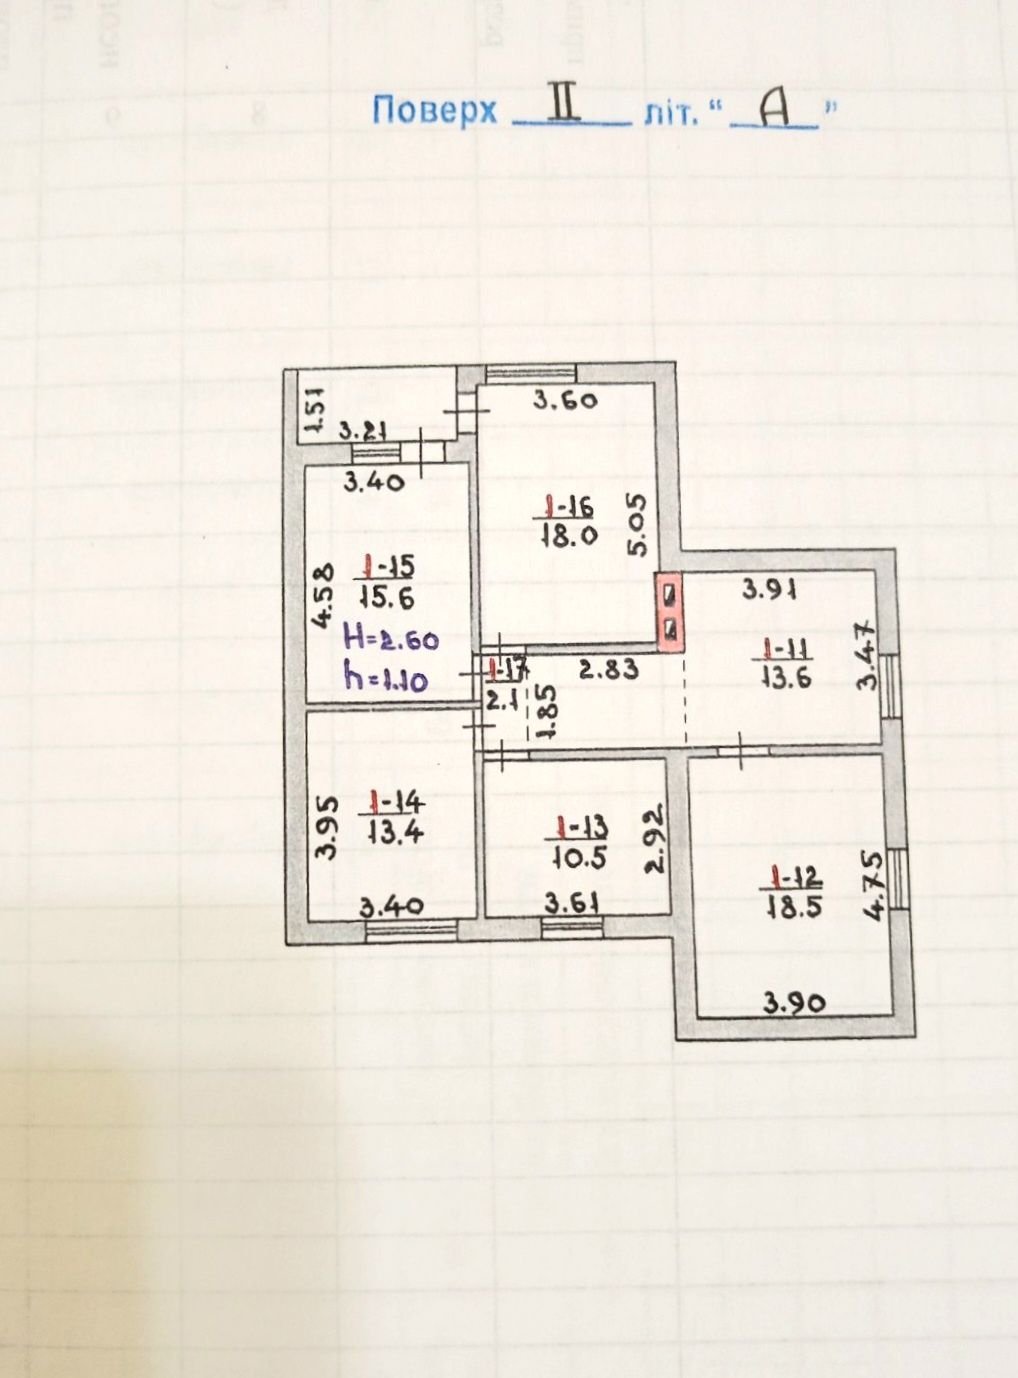 Поверх II літ. “ A ”
1.51
3.21
3.60
3.40
1-16
18.0
5.05
4.58
1-15
15.6
H=2.60
h=1.10
3.91
1-11
13.6
3.47
1-17
2.1
2.83
1.85
3.95
1-14
13.4
3.40
1-13
10.5
2.92
3.61
1-12
18.5
4.75
3.90